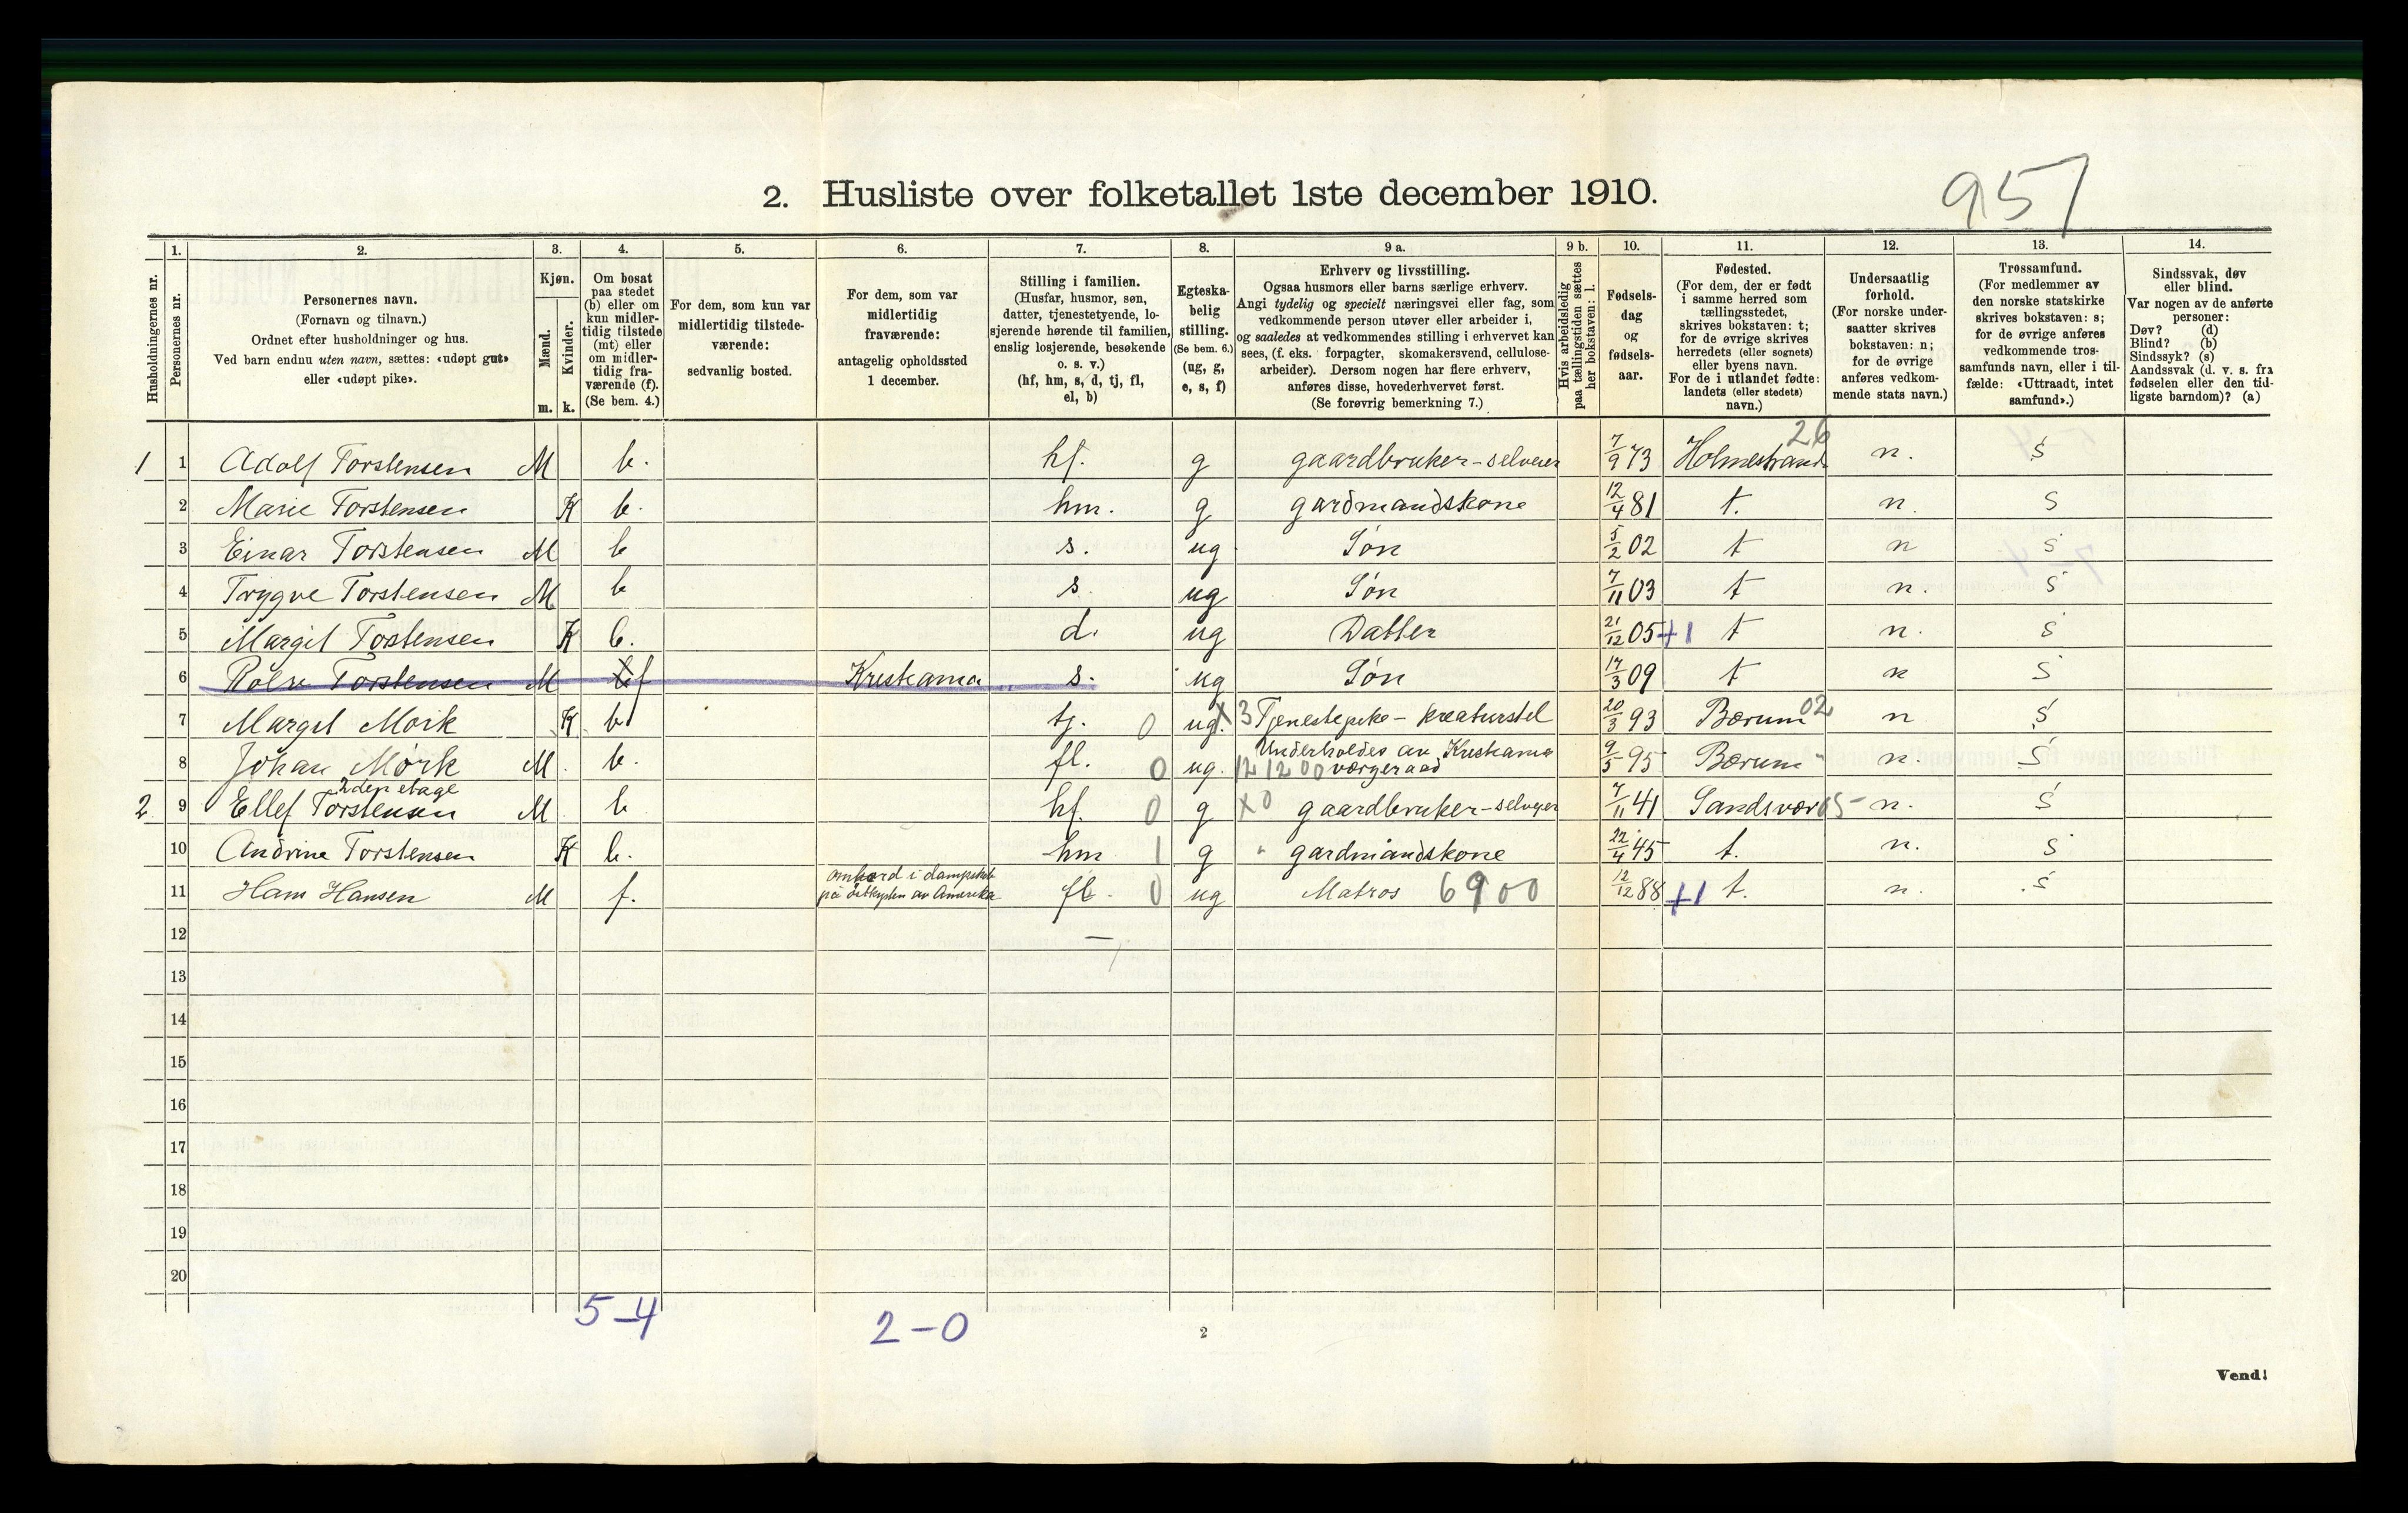 957
2. Husliste over folketallet 1ste december 1910.
Husholdningernes nr.
1.
Personernes nr.
2.
Personernes navn.
(Fornavn og tilnavn.)
Ordnet efter husholdninger og hus.
Ved barn endnu uten navn, sættes: «udøpt gut»
eller «udøpt pike».
3.
Kjøn.
Mænd.
Kvinder.
m. k.
4.
Om bosat
paa stedet
(b) eller om
kun midler-
tidig tilstede
(mt) eller
om midler-
tidig fra-
værende (f).
(Se bem. 4.)
5.
For dem, som kun var
midlertidig tilstede-
værende:
sedvanlig bosted.
6.
For dem, som var
midlertidig
fraværende:
antagelig opholdssted
1 december.
7.
Stilling i familien.
(Husfar, husmor, søn,
datter, tjenestetyende, lo-
sjerende hørende til familien,
enslig losjerende, besøkende
o. s. v.)
(hf, hm, s, d, tj, fl,
el, b)
8.
Egteska-
belig
stilling.
(Se bem. 6.)
(ug, g,
e, s, f)
9 a.
Erhverv og livsstilling.
Ogsaa husmors eller barns særlige erhverv.
Angi tydelig og specielt næringsvei eller fag, som
vedkommende person utøver eller arbeider i,
og saaledes at vedkommendes stilling i erhvervet kan
sees, (f. eks. forpagter, skomakersvend, cellulose-
arbeider). Dersom nogen har flere erhverv,
anføres disse, hovederhvervet først.
(Se forøvrig bemerkning 7.)
9 b.
Hvis arbeidsledig
paa tællingstiden sættes
her bokstaven: l.
10.
Fødsels-
dag
og
fødsels-
aar.
11.
Fødested.
(For dem, der er født
i samme herred som
tællingsstedet,
skrives bokstaven: t;
for de øvrige skrives
herredets (eller sognets)
eller byens navn.
For de i utlandet fødte:
landets (eller stedets)
navn.)
12.
Undersaatlig
forhold.
(For norske under-
saatter skrives
bokstaven: n;
for de øvrige
anføres vedkom-
mende stats navn.)
13.
Trossamfund.
(For medlemmer av
den norske statskirke
skrives bokstaven: s;
for de øvrige anføres
vedkommende tros-
samfunds navn, eller i til-
fælde: «Uttraadt, intet
samfund».)
14.
Sindssvak, døv
eller blind.
Var nogen av de anførte
personer:
Døv? (d)
Blind? (b)
Sindssyk? (s)
Aandssvak (d. v. s. fra
fødselen eller den tid-
ligste barndom)? (a)
1 1 Adolf Torstensen M b. hf. g gaardbruker-selveier 7/9 73 Holmestrand 26 n. s
2 Marie Torstensen K b. hm. g gardmandskone 12/4 81 t. n. s
3 Einar Torstensen M b s. ug Søn 5/2 02 t n s
4 Trygve Torstensen M b s. ug Søn 7/11 03 t n. s
5 Margit Torstensen K b. d. ug Datter 21/12 05 +1 t n. s
6 Torstensen M f Kristiania s. ug Søn 17/3 09 t n s
7 Margit Mørk K b tj. 0 ug. X 3 Tjenestepike - kreaturstel 20/3 93 Bærum 02 n s
8 Johan Mørk M. b. fl. 0 ug. Underholdes av Kristiania
12 12 00 værgeraad 9/5 95 Bærum " n. s
2den etage
2 9 Ellef Torstensen M b hf. 0 g X0 gaardbruker-selveier 7/11 41 Sandsvær 05 n. s
10 Andrine Torstensen K b. hm 1 g " gardmandskone 22/4 45 t. n. s
ombord i dampskib
11 Hans Hansen M f. på østkysten av Amerika fl. 0 ug Matros 6900 12/12 88 +1 t. n. s
12
13
14
15
16
17
18
19
20
5-4
2-0
2
Vend!